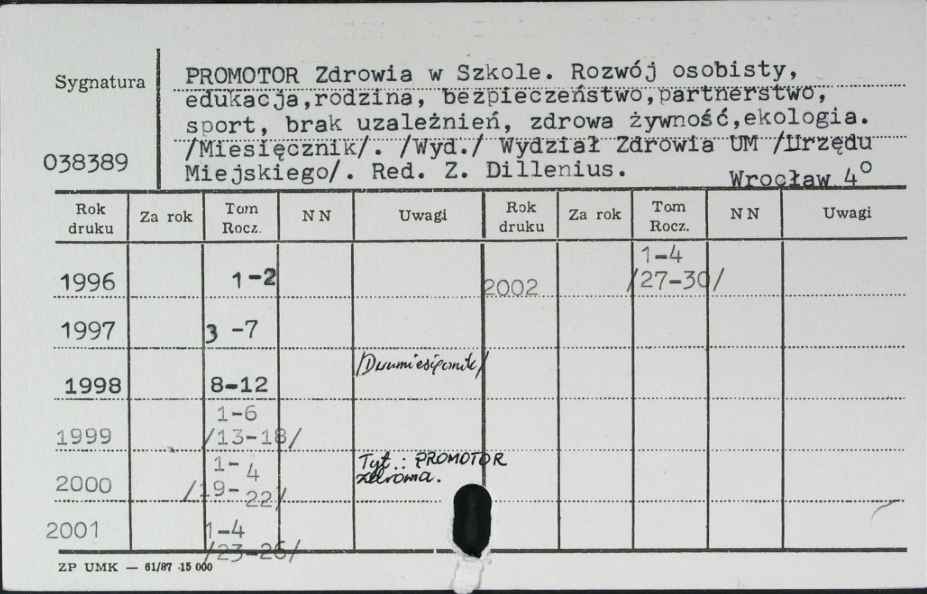 PROMOTOR Zdrowia w Szkole. Rozwój osobisty,
Sygnatura
edukacja,rodzina, bezpieczeństwo,partnerstwo,
sport, brak uzależnień, zdrowa żywność,ekologia.
/Miesięcznik/. /Wyd./ Wydział Zdrowia UM /Urzędu
038389
Miejskiego/. Red. Z. Dillenius. Wrocław 4°
Rok druku Za rok Tom Rocz. NN Uwagi Rok druku Za rok Tom Rocz. NN Uwagi
1996 1-2 2002 1-4 /27-30/
1997 3 -7
1998 8-12 /Dwumiesięcznik/
1999 1-6 /13-18/
2000 1-4 /19-22/ Tyt.: PROMOTOR zdrowia.
2001 1-4 /23-26/
ZP UMK — 61/87 15 000